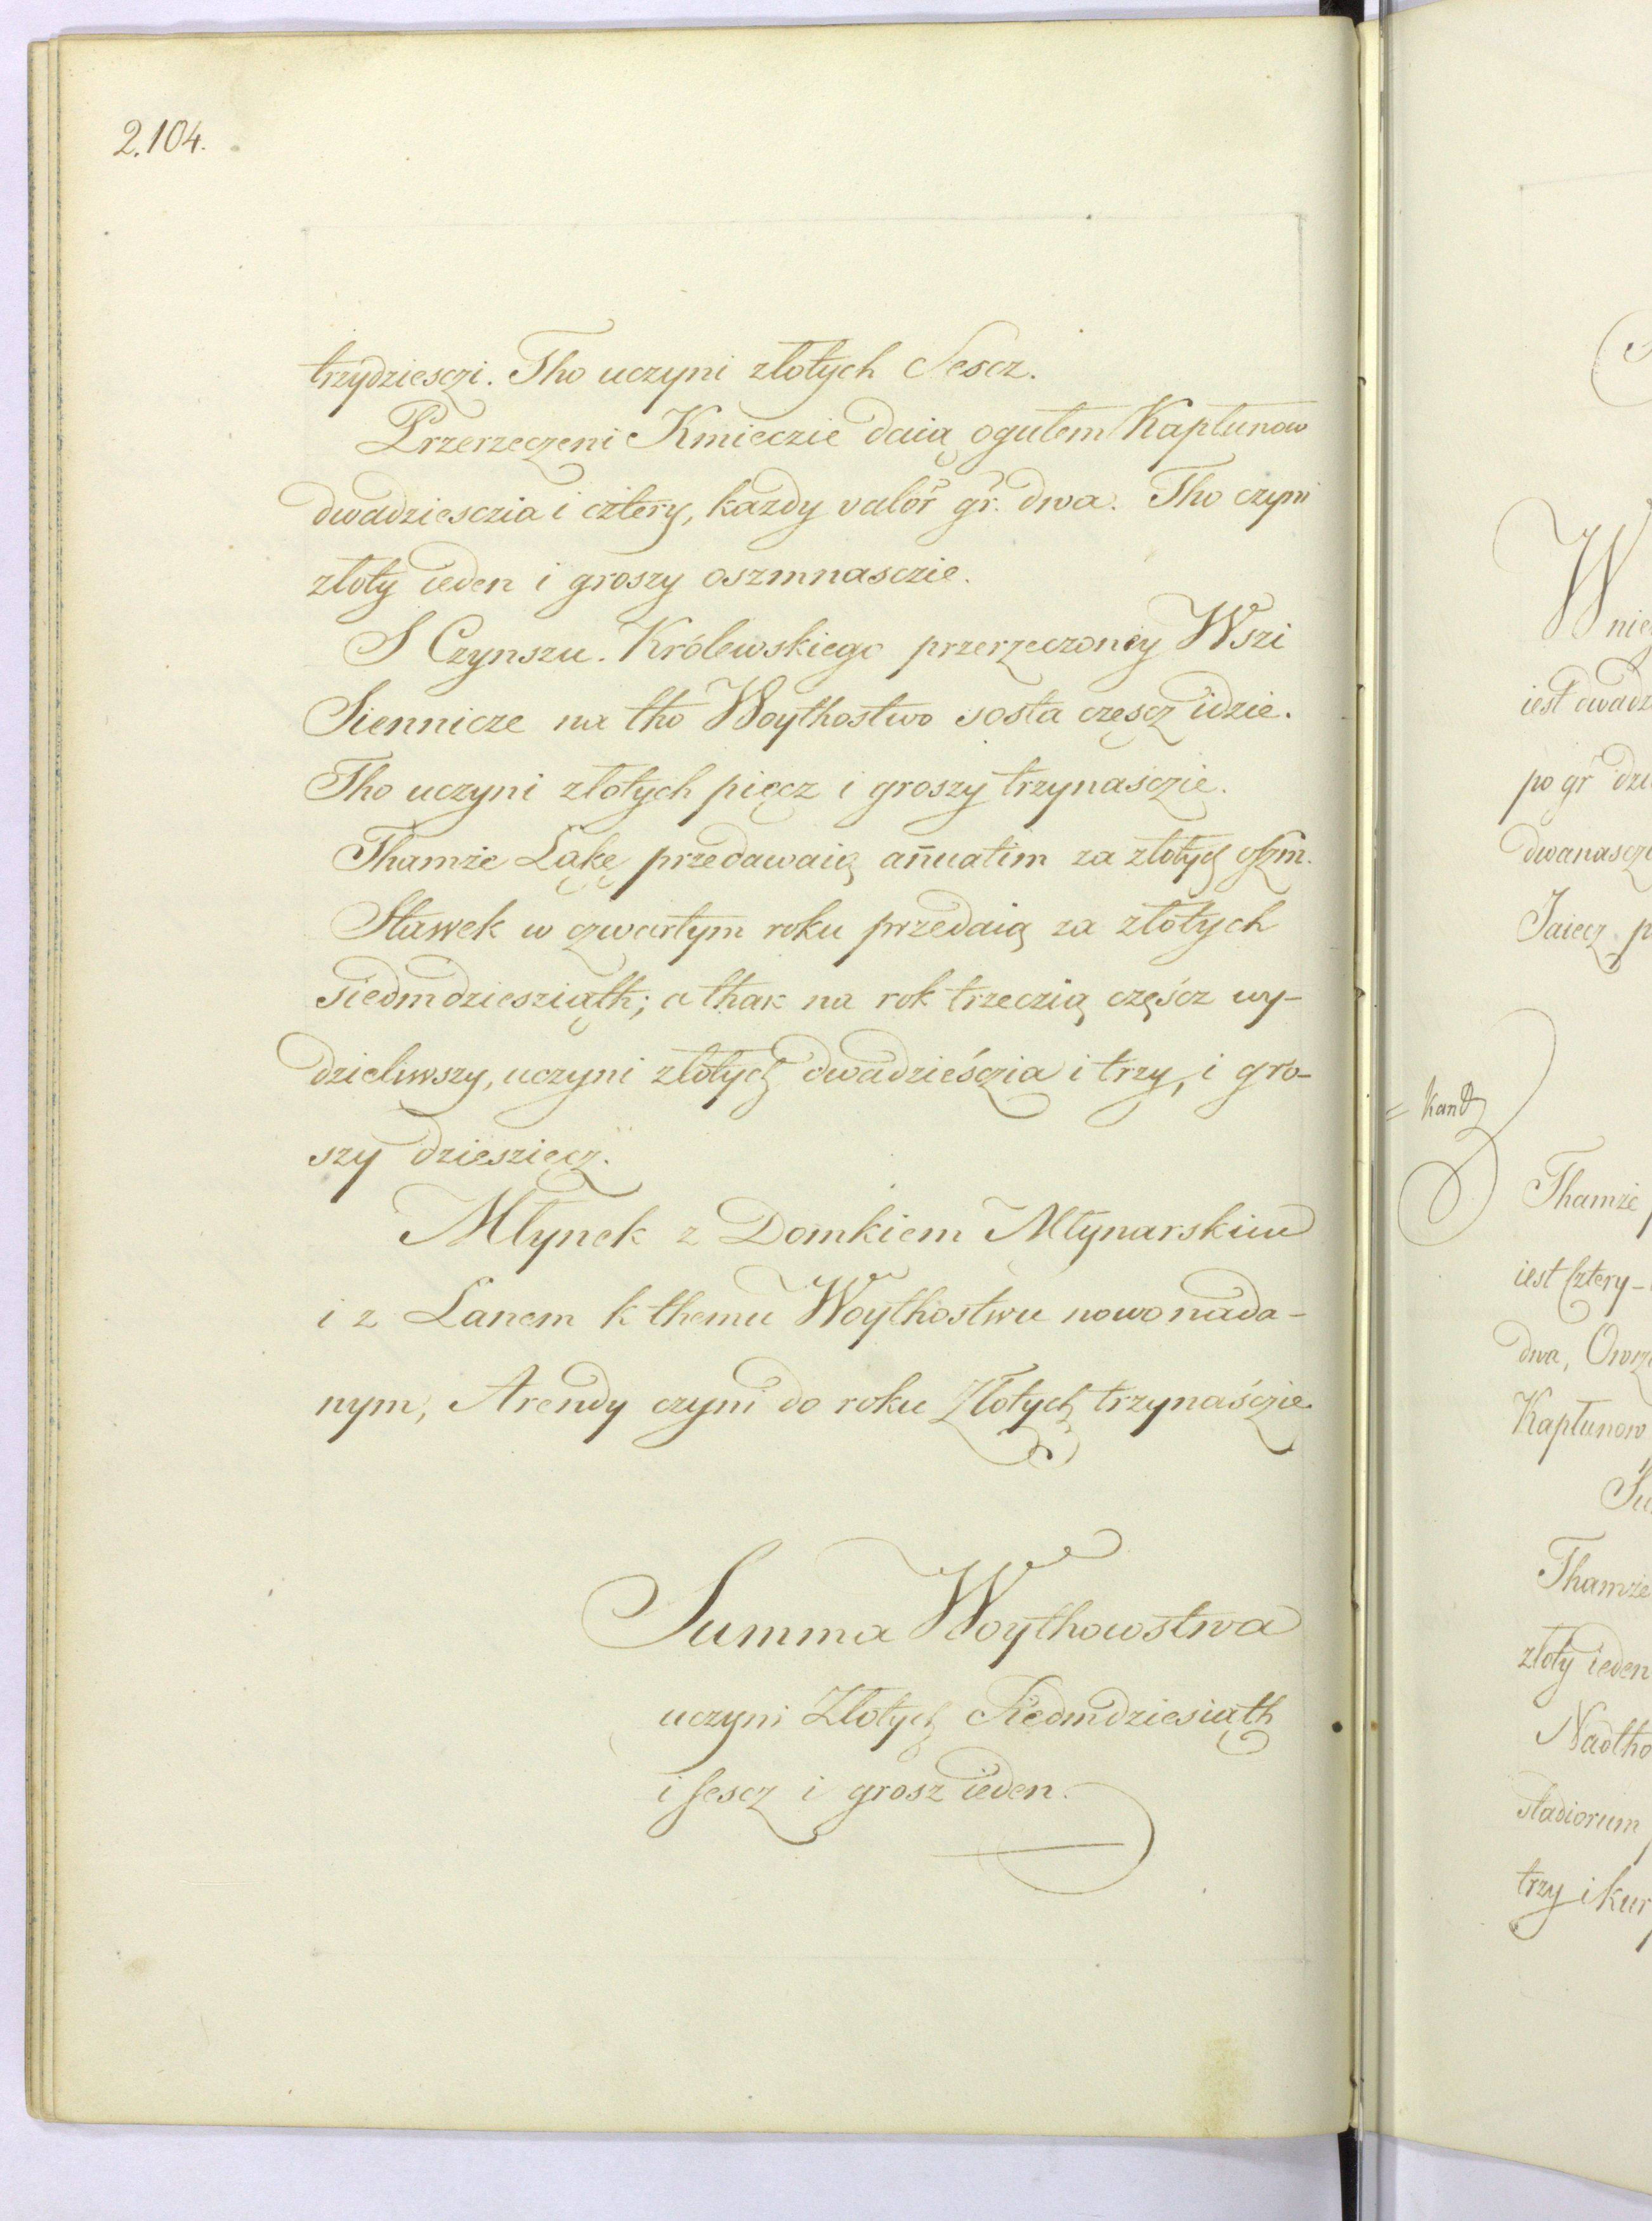 2.104.
trzydziesczi. Tho uczyni złotych Sescz.
Przerzeczeni Kmieczie daią ogułem Kapłunow
dwadziesczia i cztery, kazdy valor gr. dwa. Tho czyni
złoty ieden i groszy oszmnasczie.
S Czynszu. Królewskiego przerzeczoney Wszi
Siennicze na tho Woythostwo sosta częscz idzie.
Tho uczyni złotych pięcz i groszy trzynasczie.
Thamże Łąkę przedawaią añuatim za złotych oszm.
Stawek w czwartym roku przedaią za złotych
siedmdziesziąth; a thak na rok trzeczią częścz wy-
dzieliwszy, uczyni złotych dwadzieśczia i trzy, i gro-
szy dzieszięcz.
Młynek z Domkiem Młynarskim
i z Łanem k themu Woythostwu nowo nada-
nym, Arendy czyni do roku Złotych trzynaśczie.
Summa Woythowstwa
uczyni Złotych Siedmdziesiąth
i sescz i grosz ieden.
W nie
iest dwadz
po gr dzi
dwanascz
Jaiecz p
= Kand
Thamże
iest Cztery-
dwa, Owcz
Kapłunow
Thamże
złoty ieden
Nadtho
stadiorum
trzy i kur